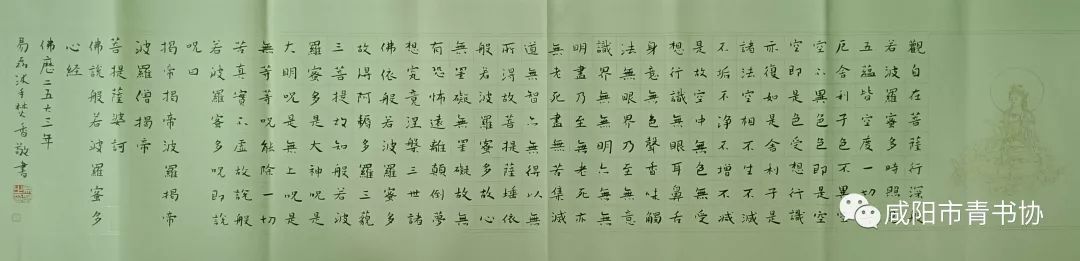 觀自在菩薩行深
若波羅蜜多時照
五蘊皆空度一切
厄舍利子色不異
空不異色色即是空
空即是色受想行識
亦復如是舍利子是
諸法空相不生不滅
不垢不淨不增不減
是故空中無色無受
想行識無眼耳鼻舌
身意無色聲香味觸
法無眼界乃至無意
識界無無明亦無無
明盡乃至無老死亦
無老死盡無苦集滅
道無智亦無得以無
所得故菩提薩埵依
般若波羅蜜多故心
無罣礙無罣礙故無
有恐怖遠離顛倒夢
想究竟涅槃三世諸
佛依般若波羅蜜多
故得阿耨多羅三藐
三菩提故知般若波
羅蜜多是大神呪是
大明呪是無上呪是
無等等呪能除一切
苦真實不虛故說般
若波羅蜜多呪即說
呪曰
揭帝揭帝波羅揭帝
波羅僧揭帝
菩提薩婆訶
佛說般若波羅蜜多
心經
佛歷二五六三年
易焚香敬書
咸阳市青书协